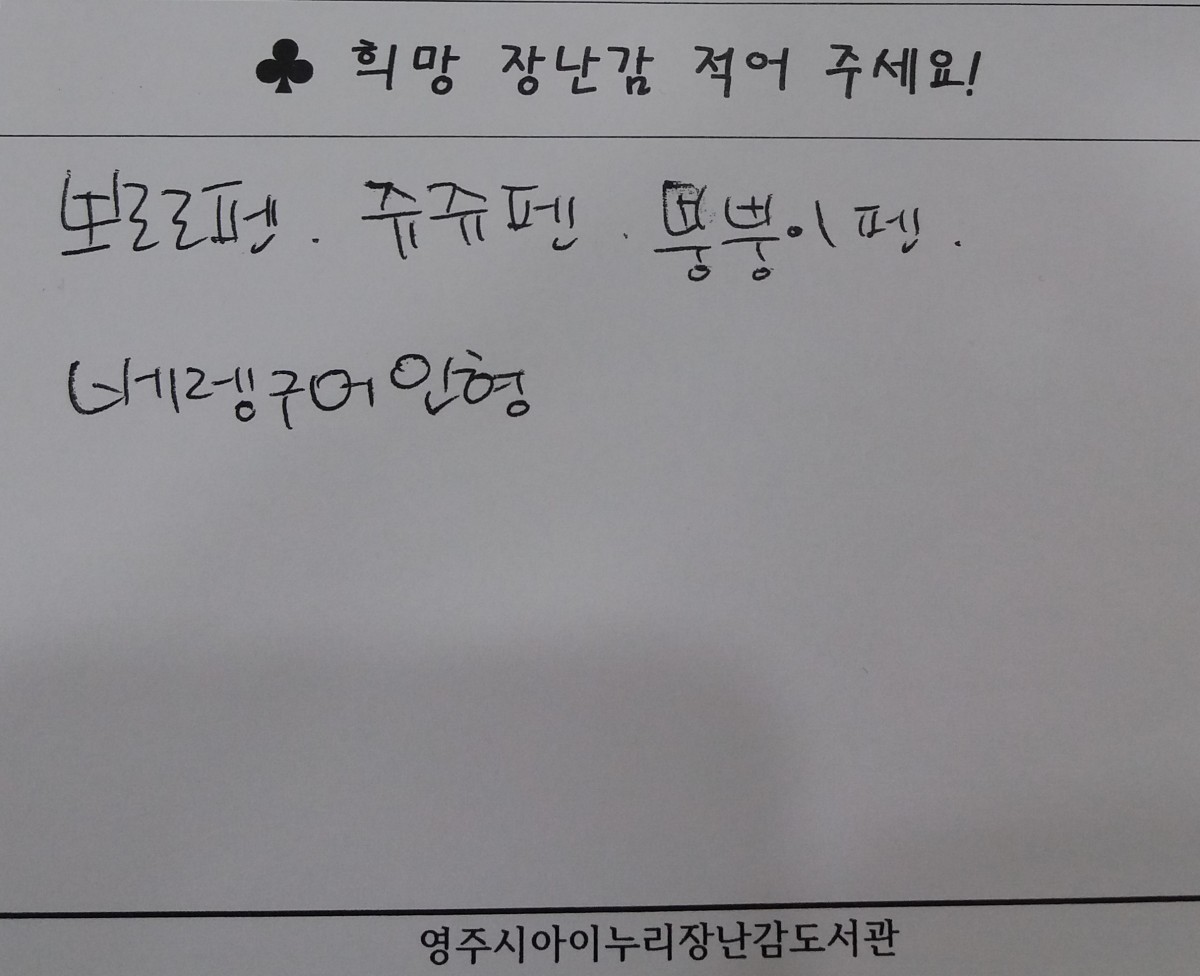 ♣ 희망 장난감 적어 주세요!
뽀로로펜. 쥬쥬펜. 뿡뿡이펜.
베렝구어인형
영주시아이누리장난감도서관